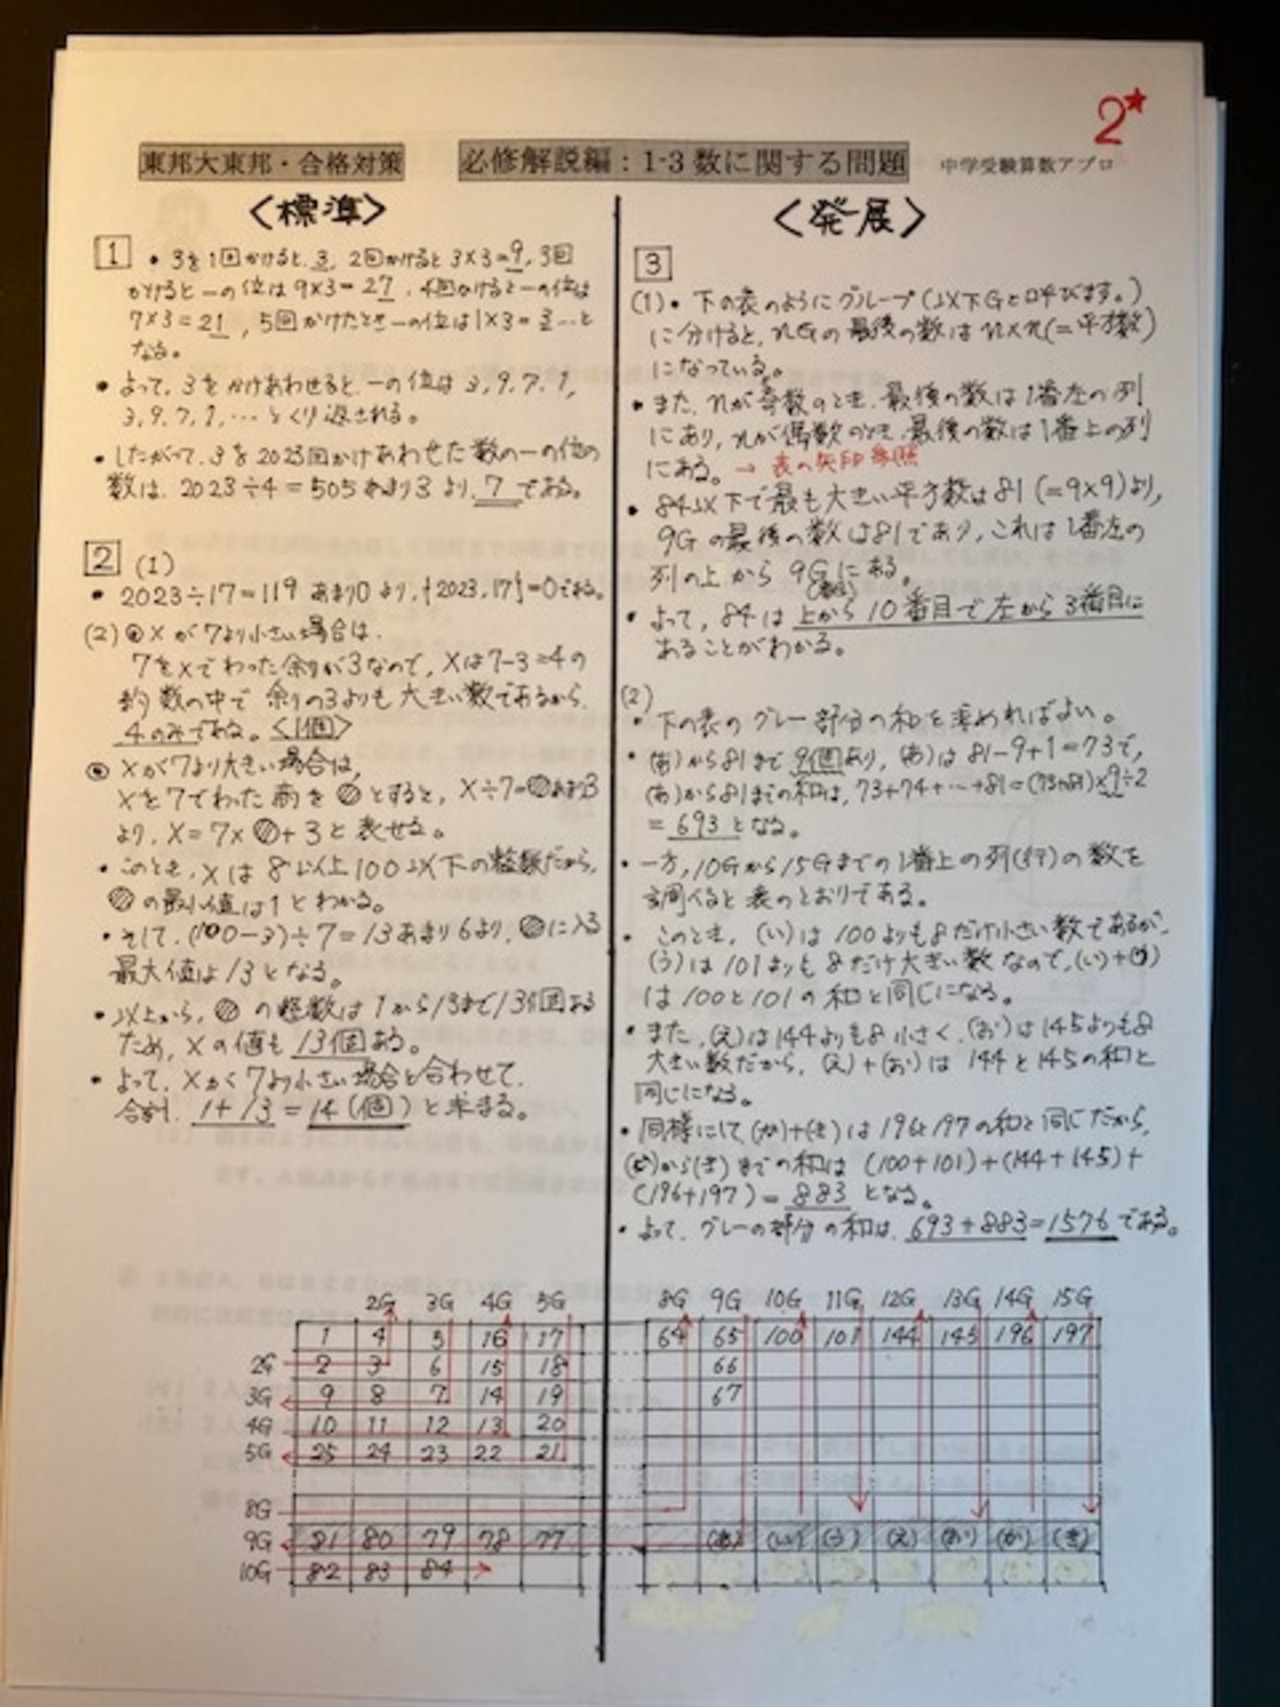 2★
東邦大東邦・合格対策 必修解説編：1-3 数に関する問題 中学受験算数アプロ
〈標準〉
1 ・3を1回かけると、3、2回かけると3×3=9、3回
かけると一の位は9×3=27、4回かけると一の位は
7×3=21、5回かけたとき一の位は1×3=3…と
なる。
・よって、3をかけあわせると、一の位は3,9,7,1,
3,9,7,1,…とくり返される。
・したがって、3を2023回かけあわせた数の一の位の
数は、2023÷4=505あまり3より、7である。
2 (1)
・2023÷17=119 あまり0より、{2023,17}=0である。
(2) ◉Xが7より小さい場合は、
7をXでわった余りが3なので、Xは7-3=4の
約数の中で 余りの3よりも大きい数であるから、
4のみである。〈1個〉
◉Xが7より大きい場合は、
Xを7でわった商を◍とすると、X÷7=◍あまり3
より、X=7×◍+3と表せる。
・このとき、Xは8以上100以下の整数だから、
◍の最小値は1とわかる。
・そして、(100-3)÷7=13あまり6より、◍に入る
最大値は13となる。
・以上から、◍の整数は1から13まで13個ある
ため、Xの値も13個ある。
・よって、Xが7より小さい場合と合わせて、
合計、1+13=14(個)と求まる。
〈発展〉
3
(1)・下の表のようにグループ(以下Gと呼びます。)
に分けると、nGの最後の数はn×n(=平方数)
になっている。
・また、nが奇数のとき、最後の数は1番左の列
にあり、nが偶数のとき、最後の数は1番上の列
にある。→表の矢印参照
・84以下で最も大きい平方数は81(=9×9)より、
9Gの最後の数は81であり、これは1番左の
列の上から9Gにある。
・よって、84は上から10番目で左から3番目に
あることがわかる。
(2)
・下の表のグレー部分の和を求めればよい。
・(あ)から81まで9個あり、(あ)は81-9+1=73で、
(あ)から81までの和は、73+74+…+81=(73+81)×9÷2
=693となる。
・一方、10Gから15Gまでの1番上の列(行)の数を
調べると表のとおりである。
・このとき、(い)は100よりも8だけ小さい数であるが、
(う)は101よりも8だけ大きい数なので、(い)+(う)
は100と101の和と同じになる。
・また、(え)は144よりも8小さく、(お)は145よりも8
大きい数だから、(え)+(お)は144と145の和と
同じになる。
・同様にして、(か)+(き)は196と197の和と同じだから、
から(き)までの和は (100+101)+(144+145)+
(196+197)=883となる。
・よって、グレーの部分の和は、693+883=1576である。
2G 3G 4G 5G 8G 9G 10G 11G 12G 13G 14G 15G
1 4 5 16 17 64 65 100 101 144 145 196 197
2G 2 3 6 15 18 66
3G 9 8 7 14 19 67
4G 10 11 12 13 20
5G 25 24 23 22 21
8G
9G 81 80 79 78 77 (あ) (い) (う) (え) (お) (か) (き)
10G 82 83 84